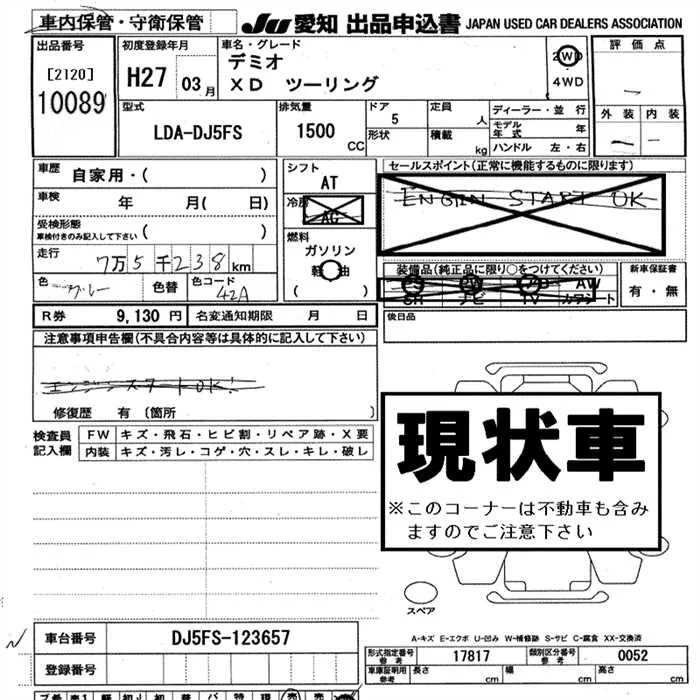 車内保管・守衛保管 JU 愛知 出品申込書 JAPAN USED CAR DEALERS ASSOCIATION
出品番号 初度登録年月 車名・グレード 評価点
[2120] H27 03月 デミオ 2WD
10089 XD ツーリング 4WD
外装 内装
型式 排気量 ドア 定員 ディーラー・並行
LDA-DJ5FS 1500 CC 5 人 モデル年式 年
形状 積載 kg ハンドル 左・右
車歴 自家用・( ) シフト セールスポイント(正常に機能するものに限ります)
AT ENGIN START OK
車検 年 月( 日) 冷房
AC
受検形態 ( )
車検付きのみ記入して下さい
燃料
走行 7万5千238km ガソリン 装備品(純正品に限り○をつけてください) 新車保証書
軽油 AW 有・無
色 グレー 色替 色コード 42A ( ) SR ナビ TV カワシート
R券 9,130円 名変通知期限 月 日 後日品
注意事項申告欄(不具合内容等は具体的に記入して下さい)
エンジンスタートOK!
修復歴 有 〔箇所 〕
現状車
検査員 FW キズ・飛石・ヒビ割・リペア跡・X要
記入欄 内装 キズ・汚レ・コゲ・穴・スレ・キレ・破レ
※このコーナーは不動車も含み
ますのでご注意下さい
スペア
A-キズ E-エクボ U-凹み W-補修跡 S-サビ C-腐食 XX-交換済
車台番号 DJ5FS-123657
型式指定番号 参考 17817 類別区分番号 参考 0052
登録番号 車庫証明用 参考 長さ cm 幅 cm 高さ cm